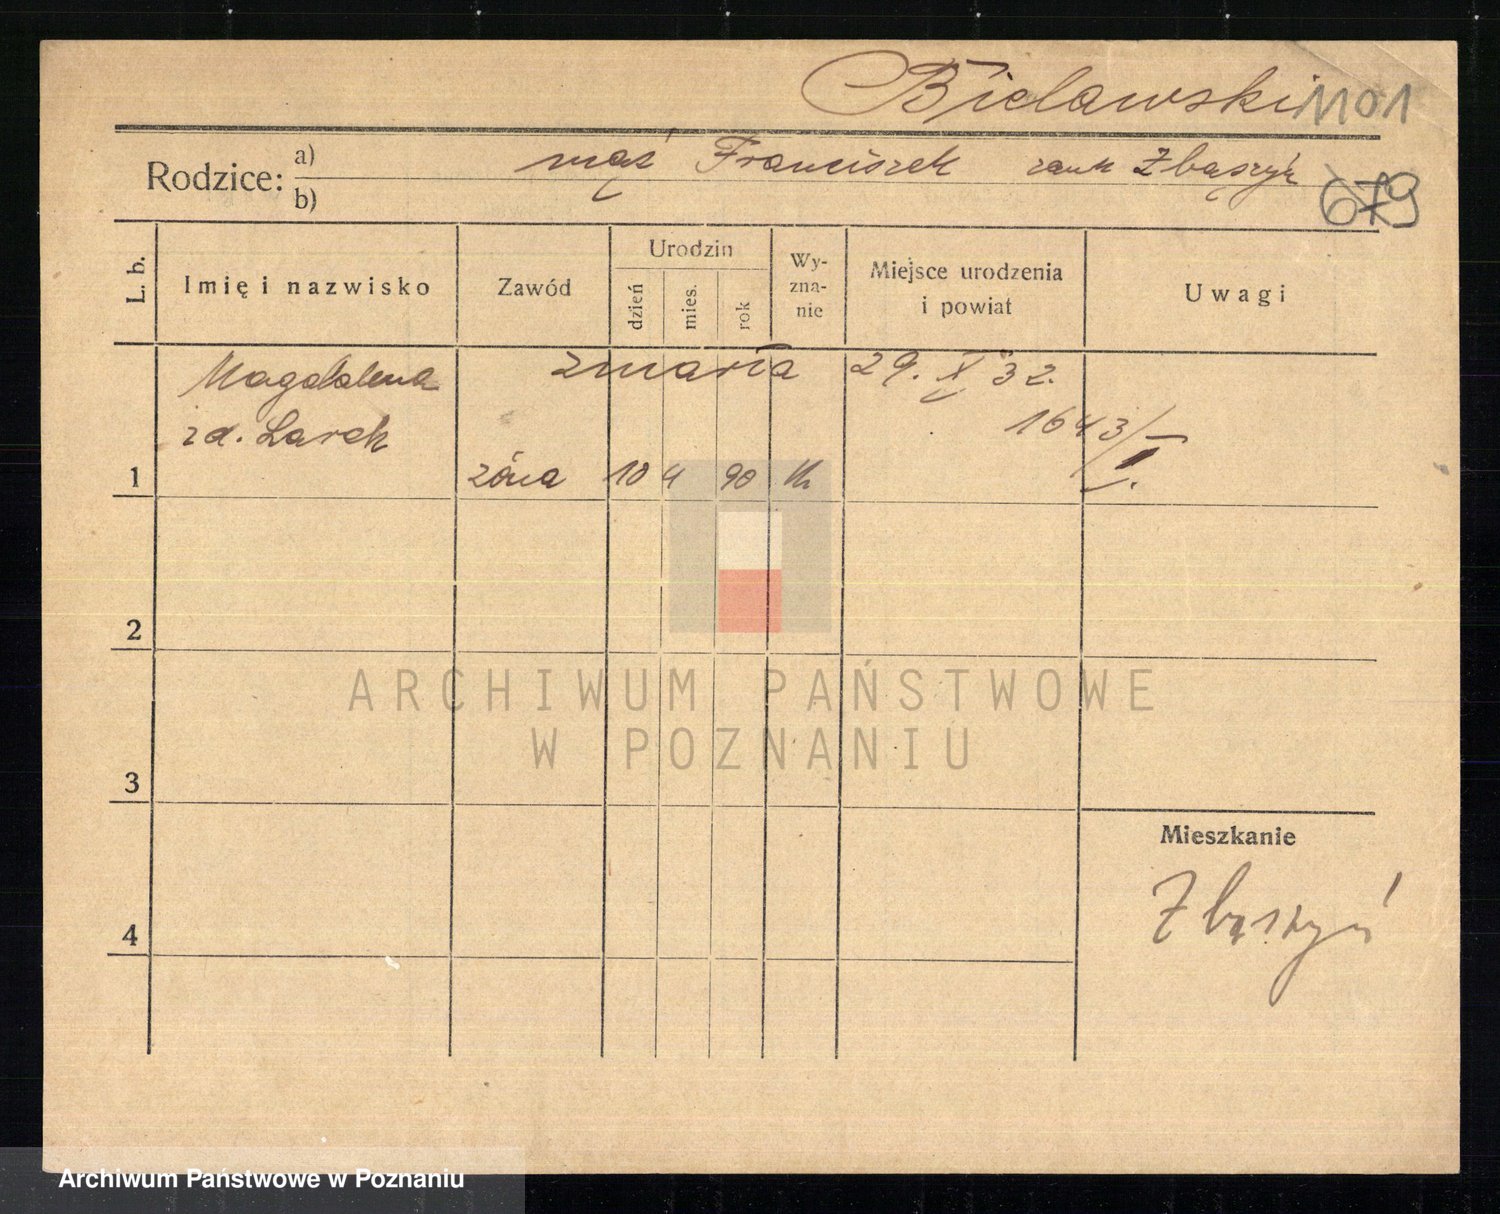 Bielawski 1101
Rodzice: a) mąż Franciszek zam Zbąszyń
b)
679
L. b.
Imię i nazwisko
Zawód
Urodzin
dzień
mies.
rok
Wy-
zna-
nie
Miejsce urodzenia
i powiat
Uwagi
Magdalena zmarła 29. X 32.
zd. Larek 1643/II.
1 żona 10 4 90
2
3
4
Mieszkanie
Zbąszyń
ARCHIWUM PAŃSTWOWE
W POZNANIU
Archiwum Państwowe w Poznaniu